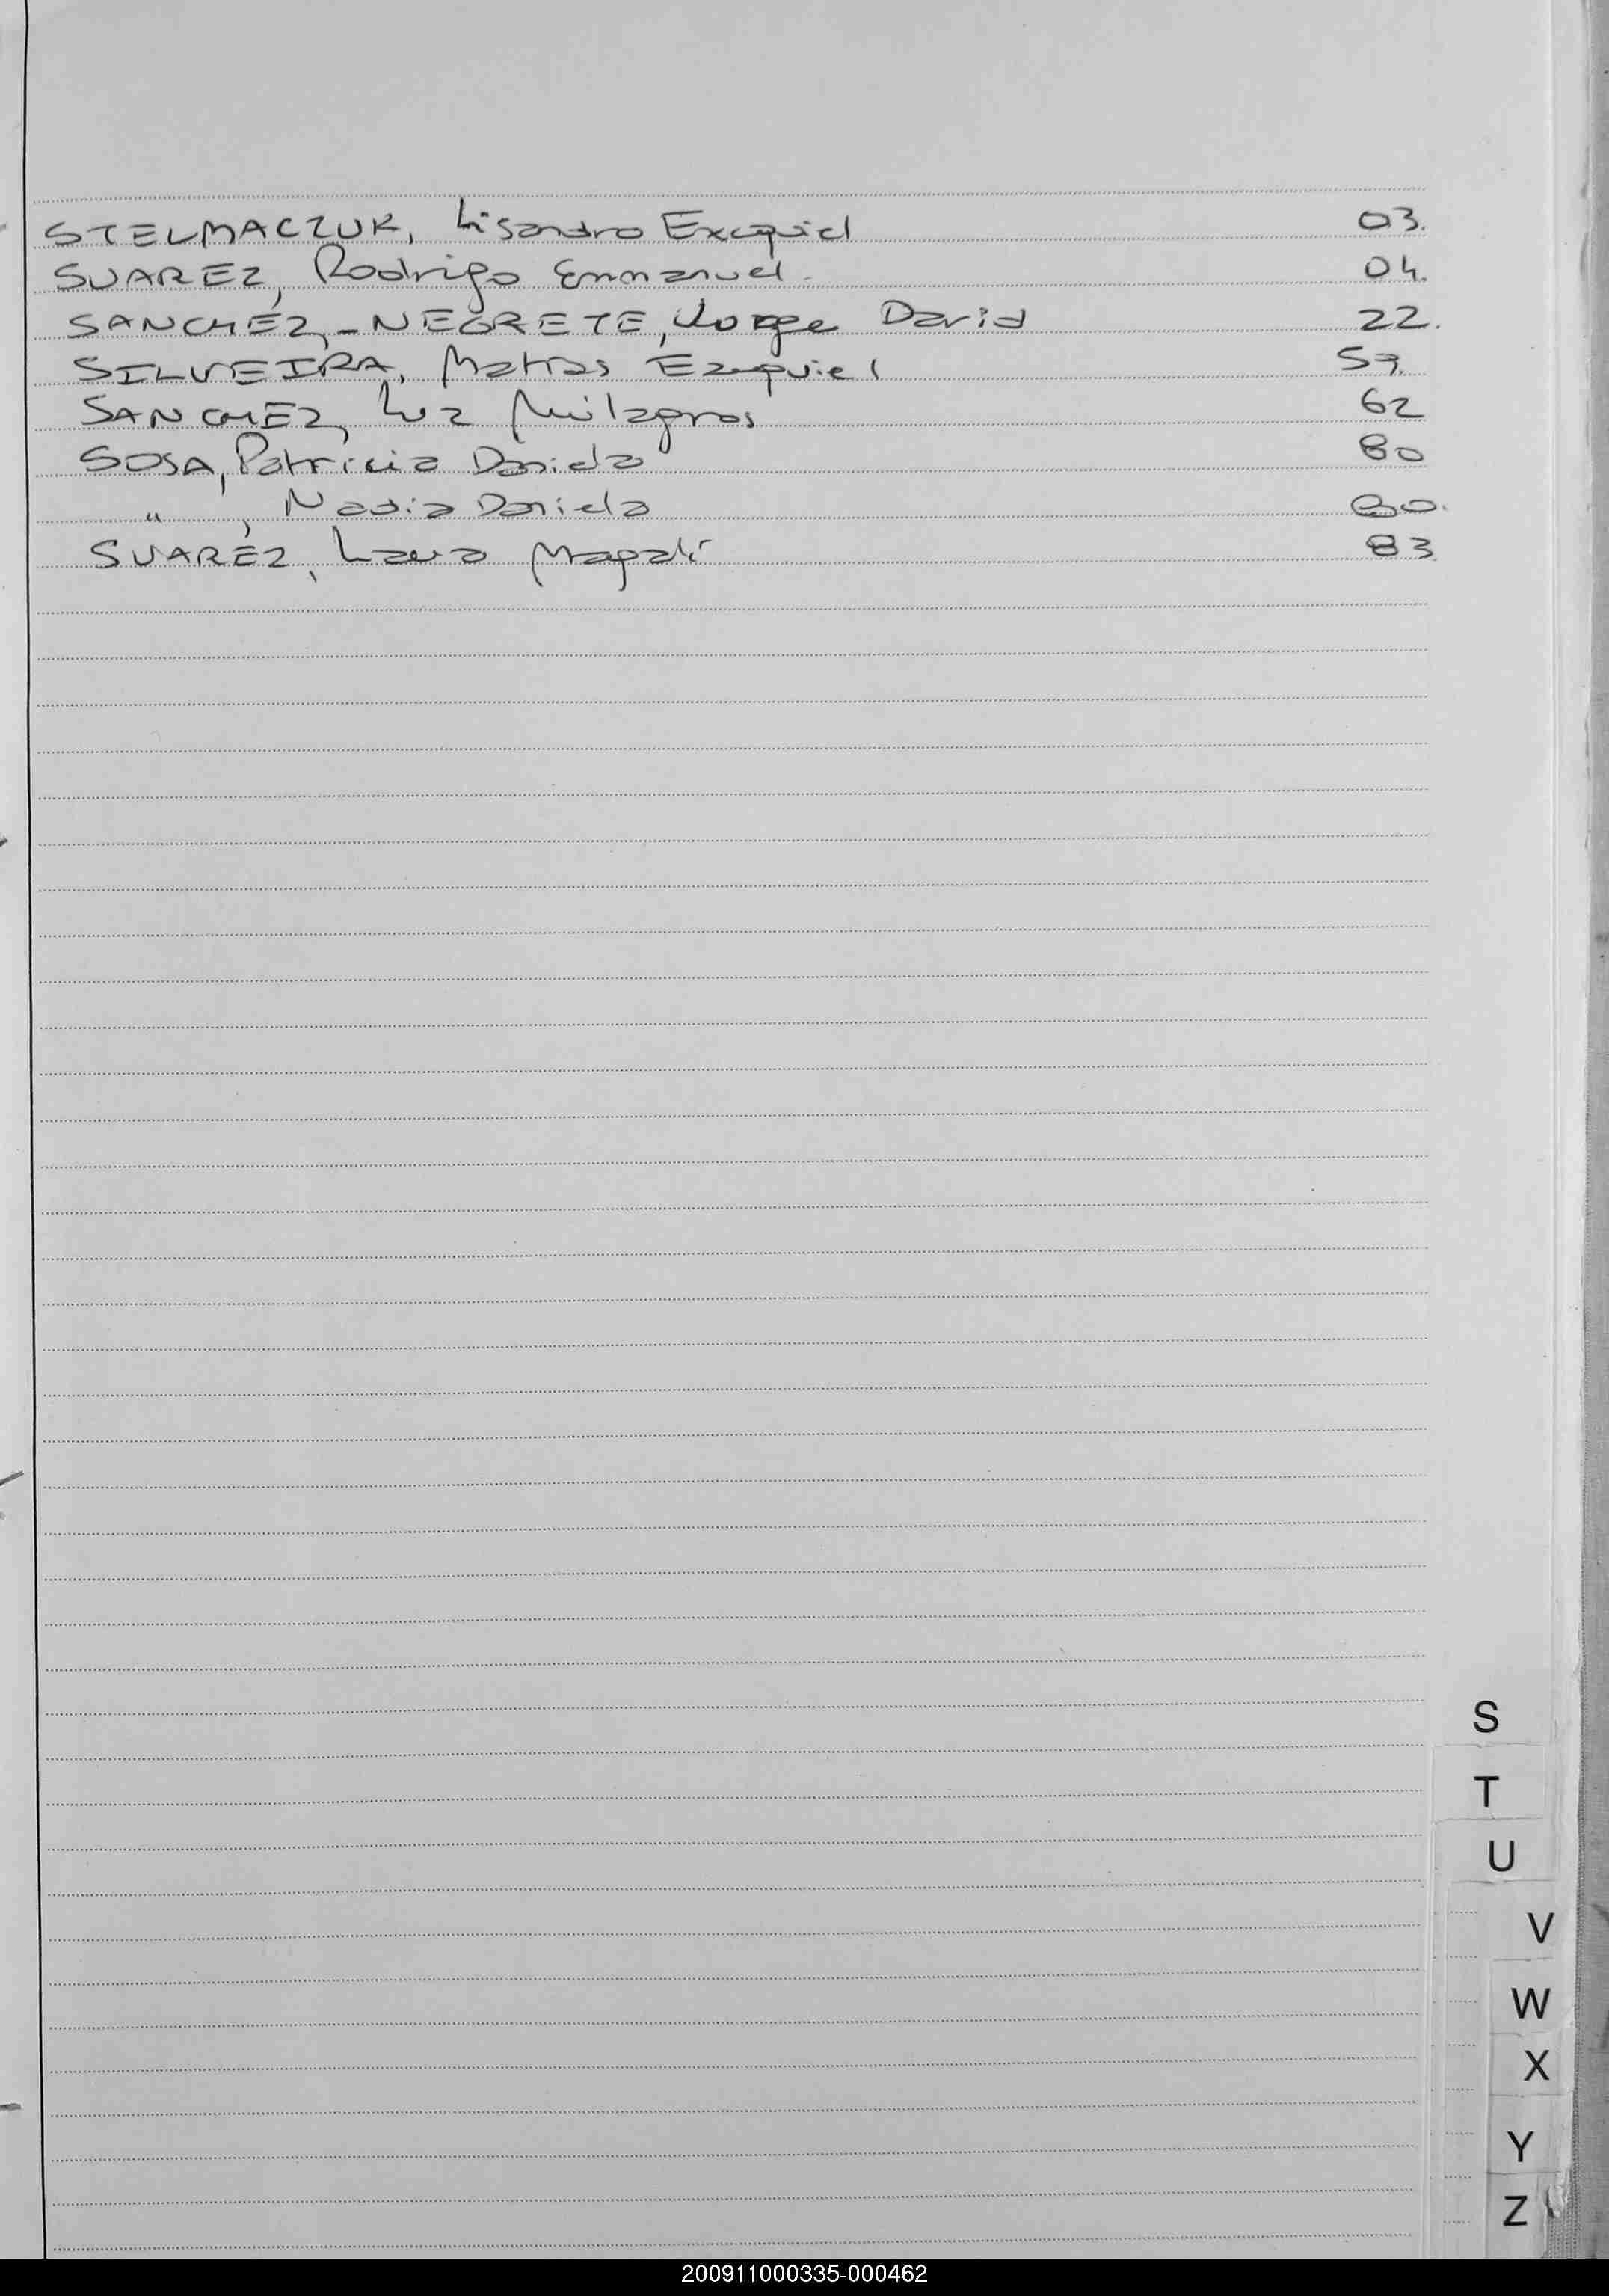 STELMACZUK, Lisandro Exequiel 03.
SUAREZ, Rodrigo Emmanuel. 04.
SANCHEZ,-NEGRETE, Jorge David 22.
SILVEIRA, Matías Ezequiel 57.
SANCHEZ, Luz Milagros 62
SOSA, Patricia Daniela 80
" , Nadia Daniela 80.
SUARÉZ, Laura Magalí 83
S
T
U
V
W
X
Y
Z
200911000335-000462